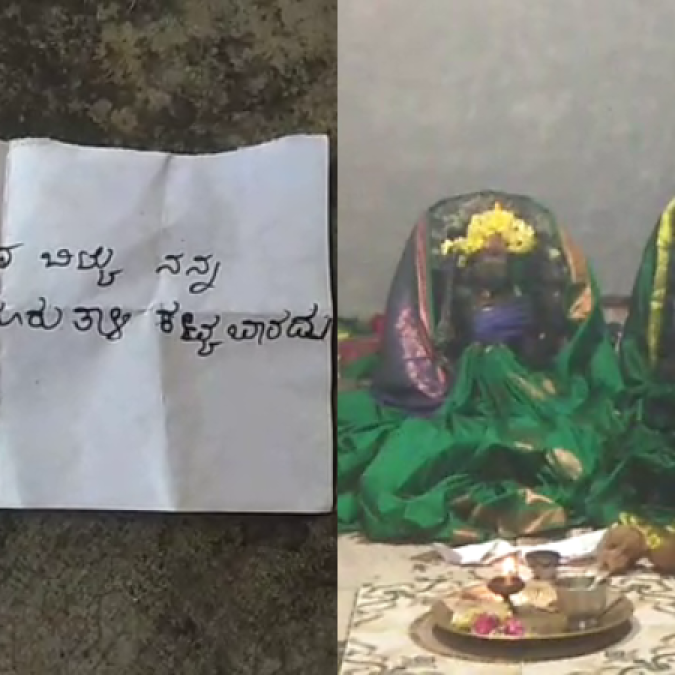 ಬಿಟ್ಟು ನನ್ನ
ತಾಳಿ ಕಟ್ಟಬಾರದು